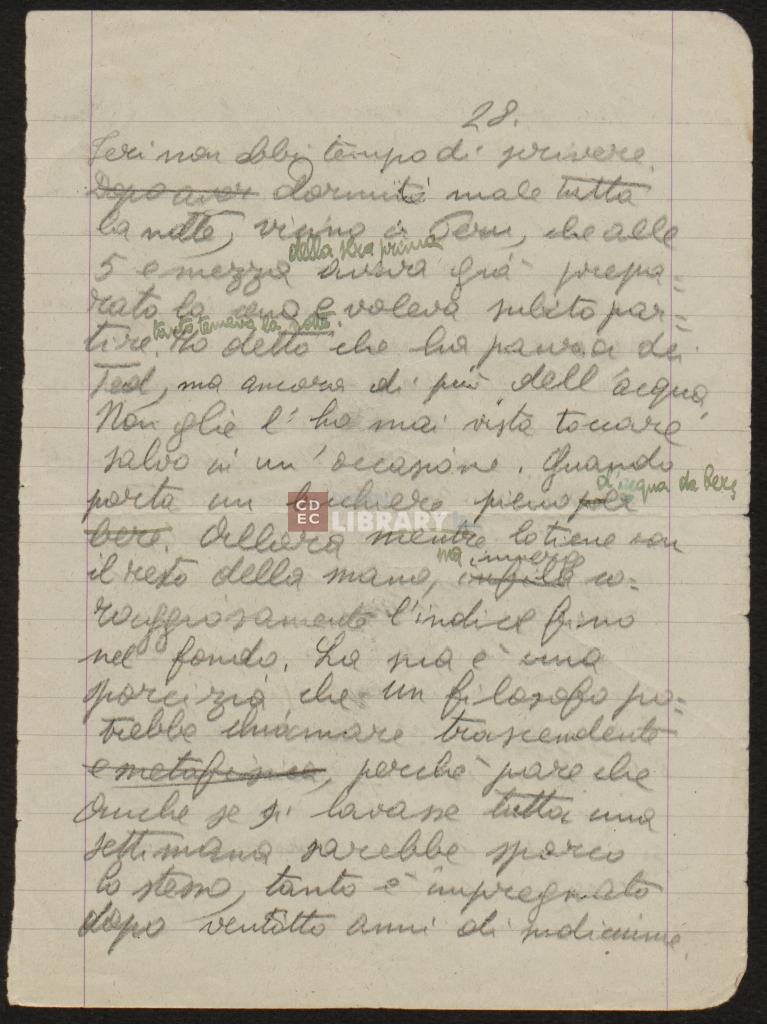 28.
Ieri non ebbi tempo di scrivere.
Dopo aver Dormito male tutta
la notte, vicino a che alle
della sera prima
5 e mezza aveva già prepa=
rato la e voleva subito par=
tanto temeva la notte.
tire. Ho detto che ha paura dei
Ted, ma ancora di più dell'acqua.
Non glie l'ho mai vista toccare
salvo in un'occasione. Quando
d'acqua da bere
porta un bicchiere pieno per
bere. Allora mentre lo tiene con
ma, immerge
il resto della mano, infila co-
raggiosamente l'indice fino
nel fondo. La sua è una
sporcizia che un filosofo po=
trebbe chiamare trascendente
e metafisica, perché pare che
anche se si lavasse tutta una
settimana sarebbe sporco
lo stesso, tanto è impregnato
dopo ventotto anni di sudiciume.
CD
EC
LIBRARY